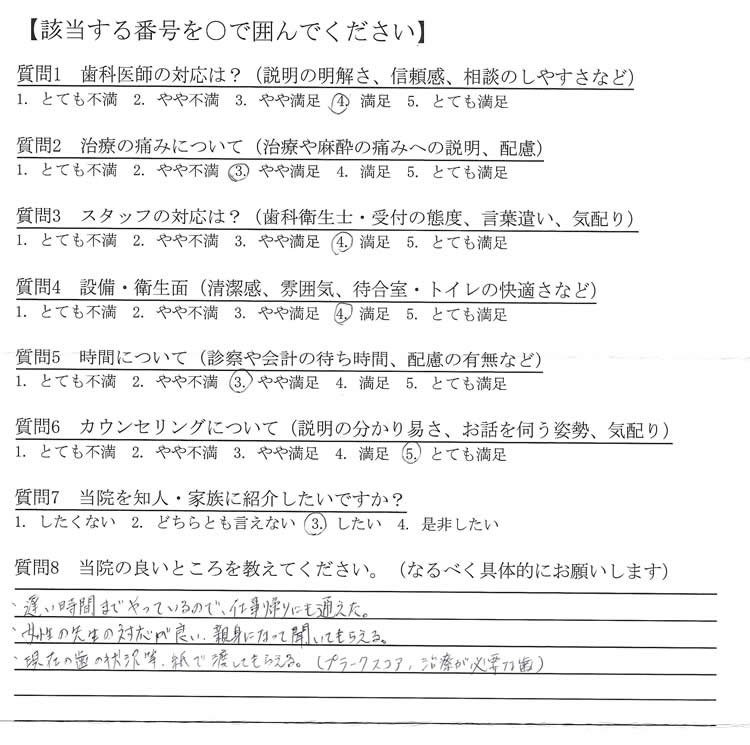 【該当する番号を○で囲んでください】
質問1 歯科医師の対応は？（説明の明解さ、信頼感、相談のしやすさなど）
1. とても不満 2. やや不満 3. やや満足 4. 満足 5. とても満足
質問2 治療の痛みについて（治療や麻酔の痛みへの説明、配慮）
1. とても不満 2. やや不満 3. やや満足 4. 満足 5. とても満足
質問3 スタッフの対応は？（歯科衛生士・受付の態度、言葉遣い、気配り）
1. とても不満 2. やや不満 3. やや満足 4. 満足 5. とても満足
質問4 設備・衛生面（清潔感、雰囲気、待合室・トイレの快適さなど）
1. とても不満 2. やや不満 3. やや満足 4. 満足 5. とても満足
質問5 時間について（診察や会計の待ち時間、配慮の有無など）
1. とても不満 2. やや不満 3. やや満足 4. 満足 5. とても満足
質問6 カウンセリングについて（説明の分かり易さ、お話を伺う姿勢、気配り）
1. とても不満 2. やや不満 3. やや満足 4. 満足 5. とても満足
質問7 当院を知人・家族に紹介したいですか？
1. したくない 2. どちらとも言えない 3. したい 4. 是非したい
質問8 当院の良いところを教えてください。（なるべく具体的にお願いします）
・遅い時間までやっているので、仕事帰りにも通えた。
・女性の先生の対応が良い、親身になって聞いてもらえる。
・現在の歯の状況等、紙で渡してもらえる。（プラークスコア、治療が必要な歯）